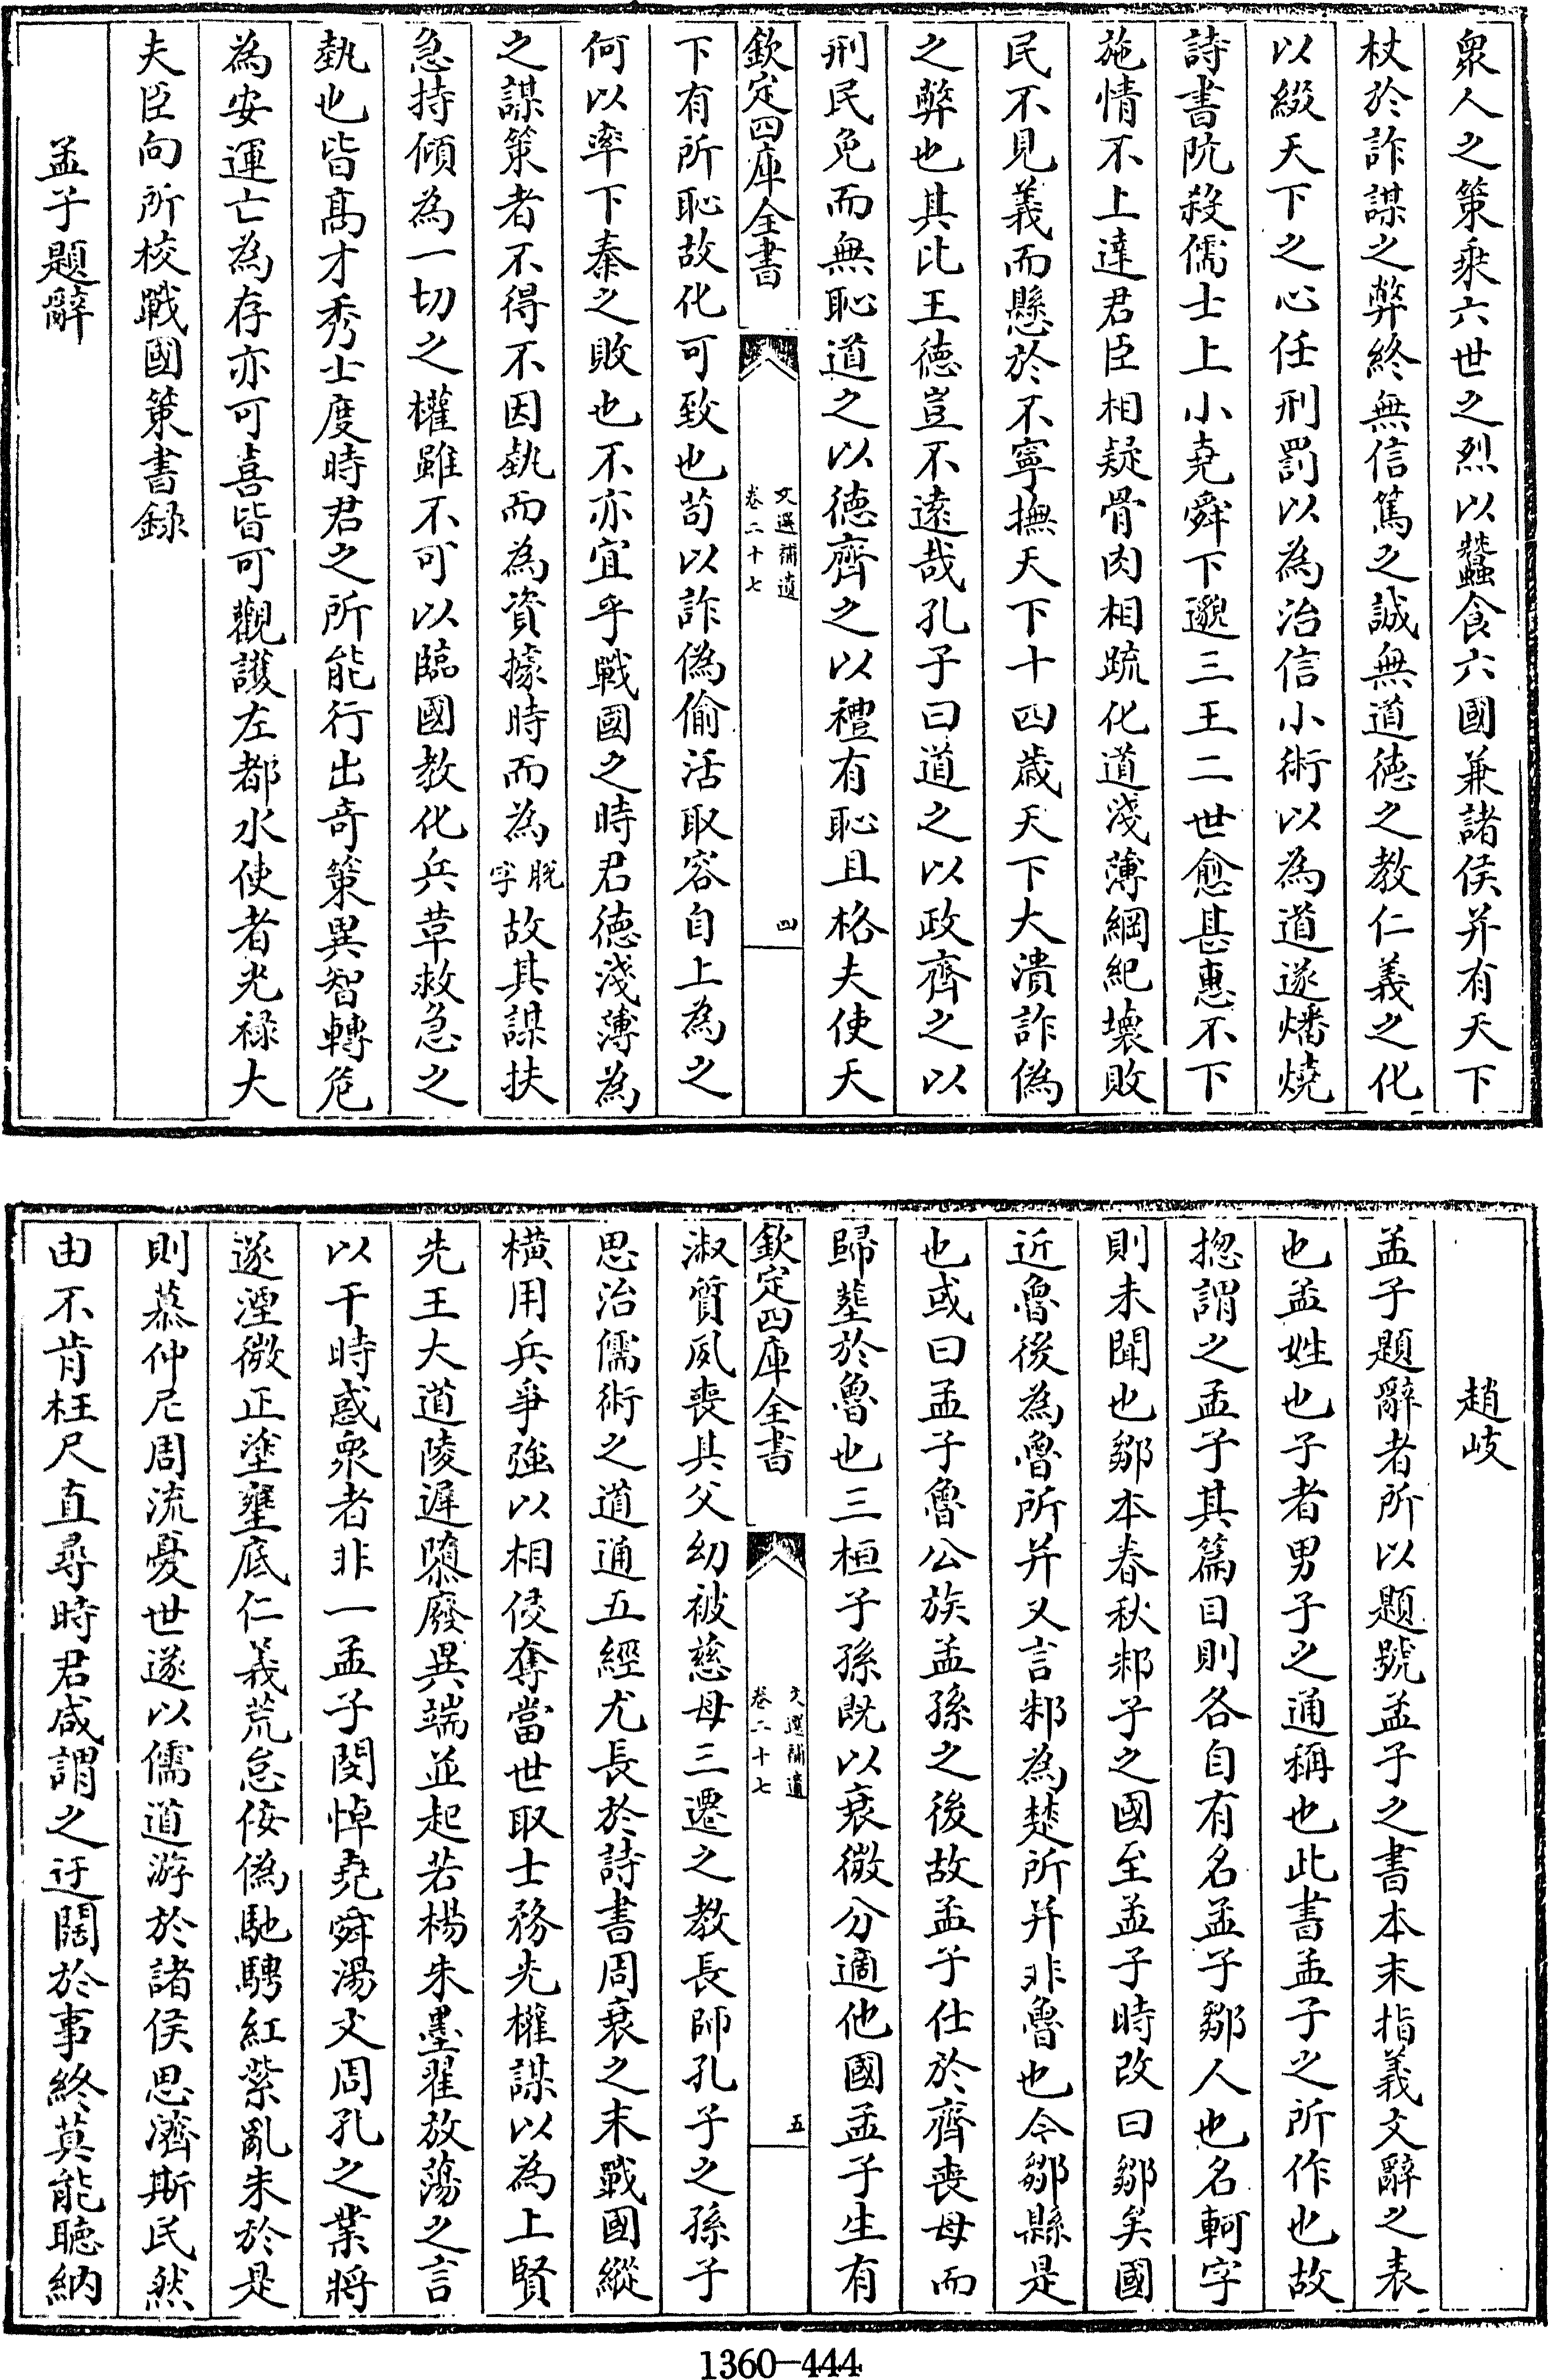 衆人之策乘六世之烈以蠶食六國兼諸侯并有天下
杖於詐謀之弊終無信篤之誠無道徳之教仁義之化
以綴天下之心任刑罰以為治信小術以為道遂燔燒
詩書阬殺儒士上小堯舜下邈三王二世愈甚惠不下
施情不上達君臣相疑骨肉相疏化道淺薄綱紀壞敗
民不見義而懸於不寧撫天下十四歳天下大潰詐偽
之弊也其比王德豈不遠哉孔子曰道之以政齊之以
刑民免而無恥道之以德齊之以禮有恥且格夫使天
欽定四庫全書
文選補遺
卷二十七
四
下有所恥故化可致也苟以詐偽偷活取容自上為之
何以率下秦之敗也不亦宜乎戰國之時君德淺薄為
之謀策者不得不因埶而為資據時而為脫字故其謀扶
急持傾為一切之權雖不可以臨國教化兵革救急之
埶也皆髙才秀士度時君之所能行出奇策異智轉危
為安運亡為存亦可喜皆可觀護左都水使者光禄大
夫臣向所校戰國策書録
孟子題辭
趙岐
孟子題辭者所以題號孟子之書本末指義文辭之表
也孟姓也子者男子之通稱也此書孟子之所作也故
揔謂之孟子其篇目則各自有名孟子鄒人也名軻字
則未聞也鄒本春秋邾子之國至孟子時改曰鄒矣國
近魯後為魯所并又言邾為楚所并非魯也今鄒縣是
也或曰孟子魯公族孟孫之後故孟子仕於齊喪母而
歸塟於魯也三桓子孫既以衰微分適他國孟子生有
欽定四庫全書
文選補遺
卷二十七
五
淑質夙喪其父幼被慈母三遷之教長師孔子之孫子
思治儒術之道通五經尤長於詩書周衰之末戰國縱
横用兵爭強以相侵奪當世取士務先權謀以為上賢
先王大道陵遲隳廢異端並起若楊朱墨翟放蕩之言
以干時惑衆者非一孟子閔悼堯舜湯文周孔之業將
遂湮微正塗壅底仁義荒怠佞偽馳騁紅紫亂朱於是
則慕仲尼周流憂世遂以儒道游於諸侯思濟斯民然
由不肯枉尺直尋時君咸謂之迂闊於事終莫能聴納
1360-444